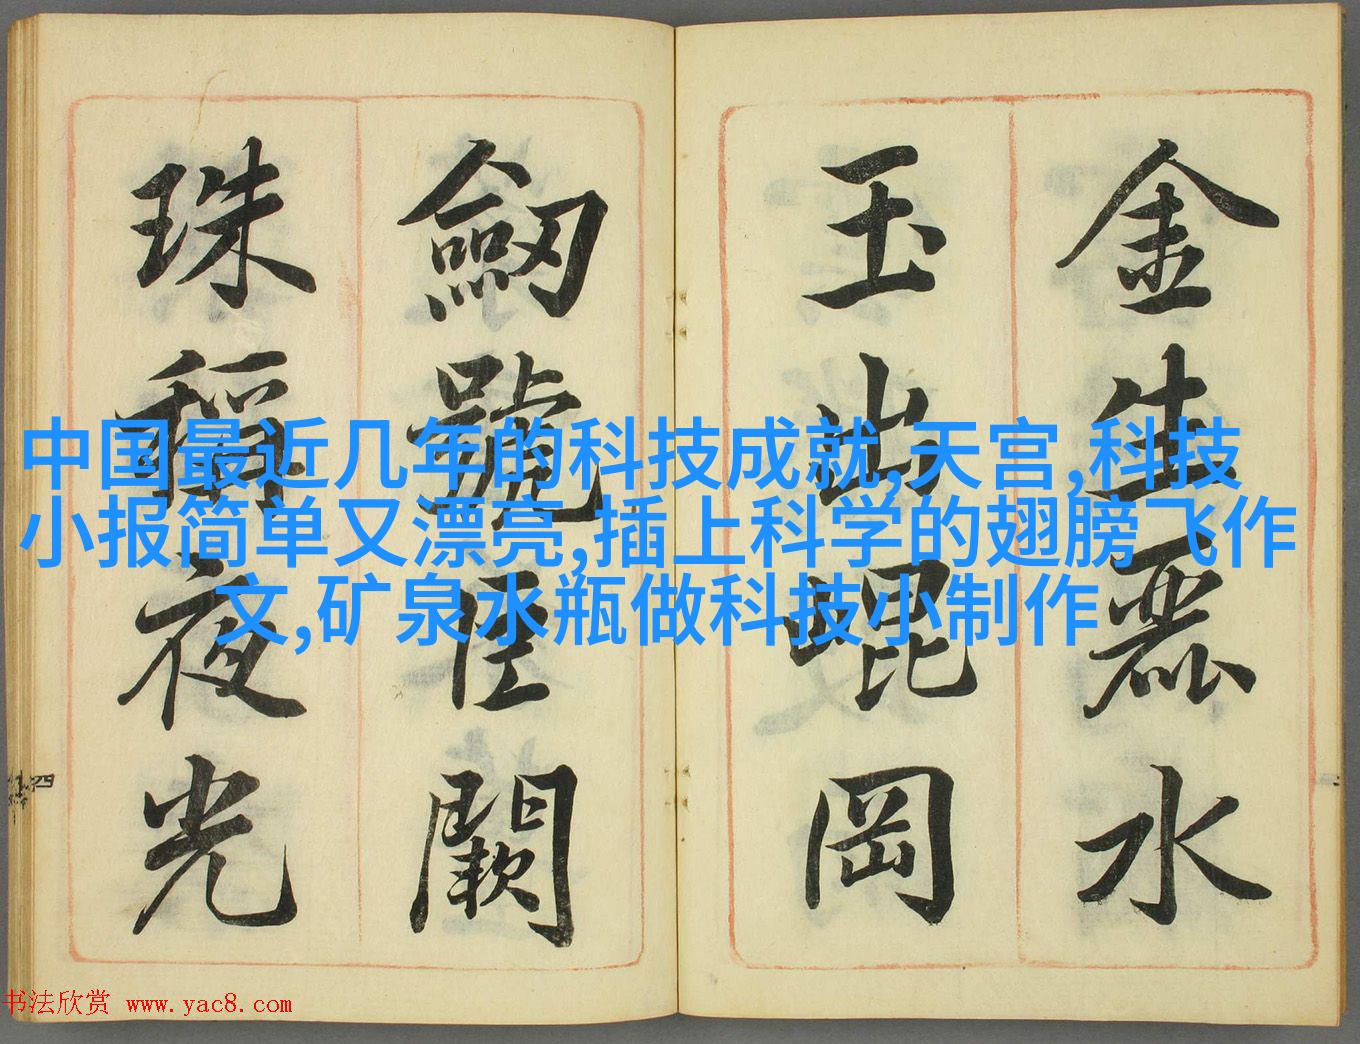 金生麗水
玉出崐岡
劒號巨闕
珠稱夜光
中国最近几年的科技成就,天宫,科技
小报简单又漂亮,插上科学的翅膀飞作
文,矿泉水瓶做科技小制作
四
书法欣赏 www.yac8.com